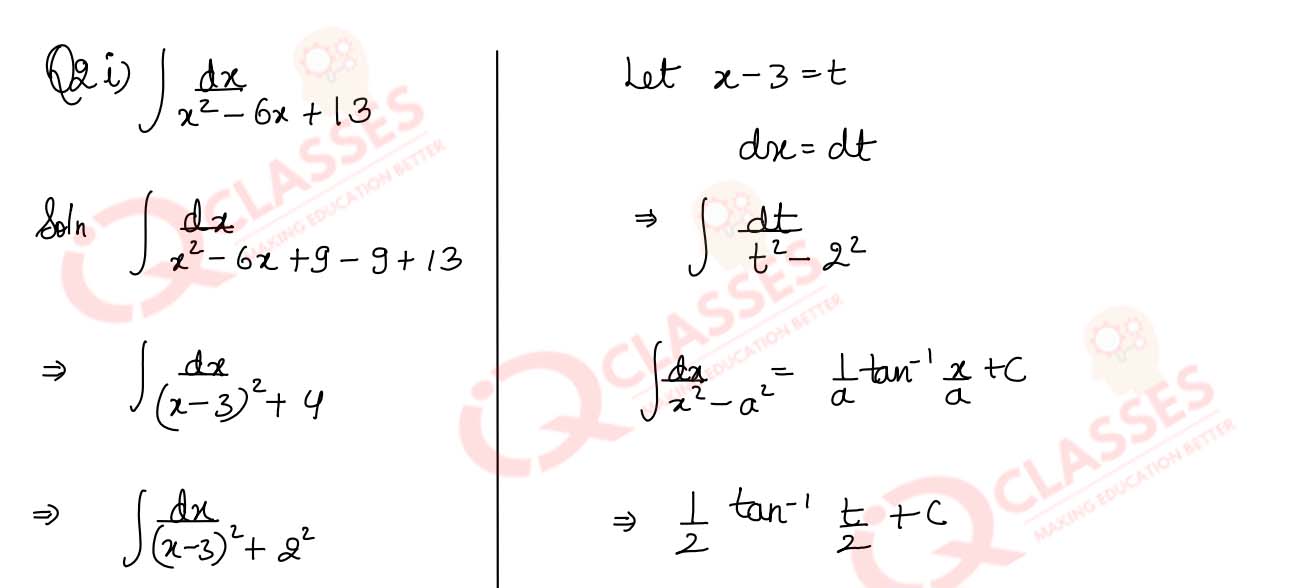 Q2 i) ∫ dx / (x² - 6x + 13)
Soln ∫ dx / (x² - 6x + 9 - 9 + 13)
⇒ ∫ dx / ((x-3)² + 4)
⇒ ∫ dx / ((x-3)² + 2²)
Let x - 3 = t
dx = dt
⇒ ∫ dt / (t² - 2²)
∫ dx / (x² - a²) = 1/a tan⁻¹ x/a + C
⇒ 1/2 tan⁻¹ t/2 + C
iQ CLASSES
MAKING EDUCATION BETTER
iQ CLASSES
MAKING EDUCATION BETTER
iQ CLASSES
MAKING EDUCATION BETTER